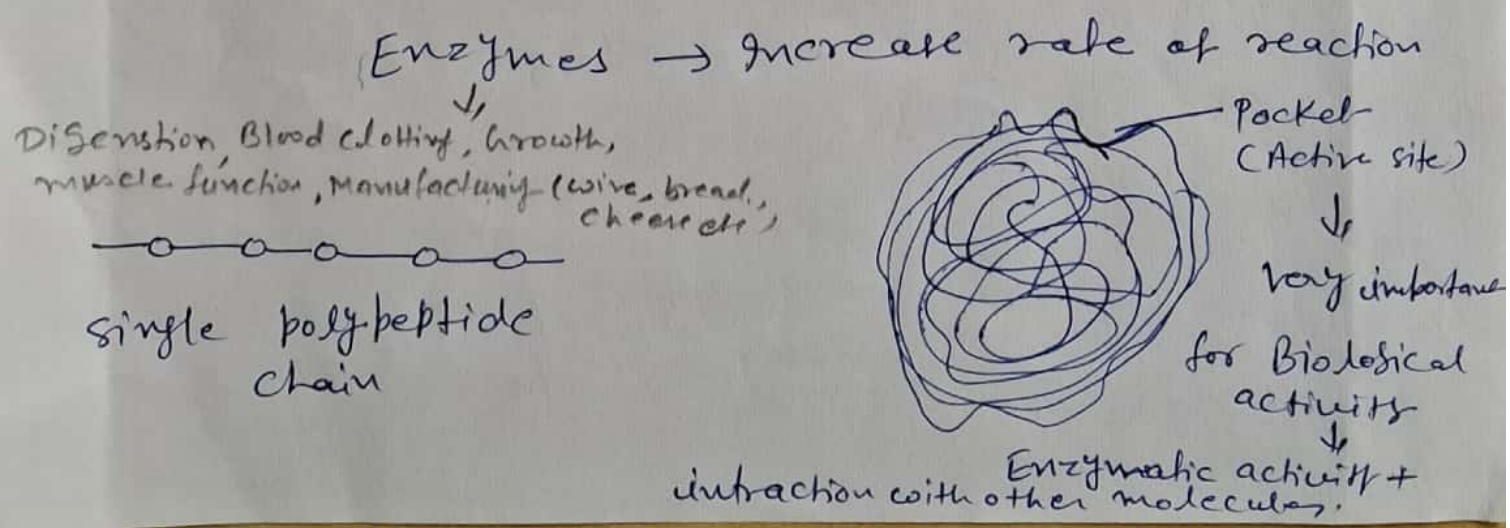 Enzymes → Increase rate of reaction
Digenstion, Blood clotting, Growth,
muscle function, Manufacturing (wine, bread,
cheese etc)
single polypeptide
chain
Pocket
(Active site)
very importane
for Biological
activity
Enzymatic activity +
intraction with other molecules.